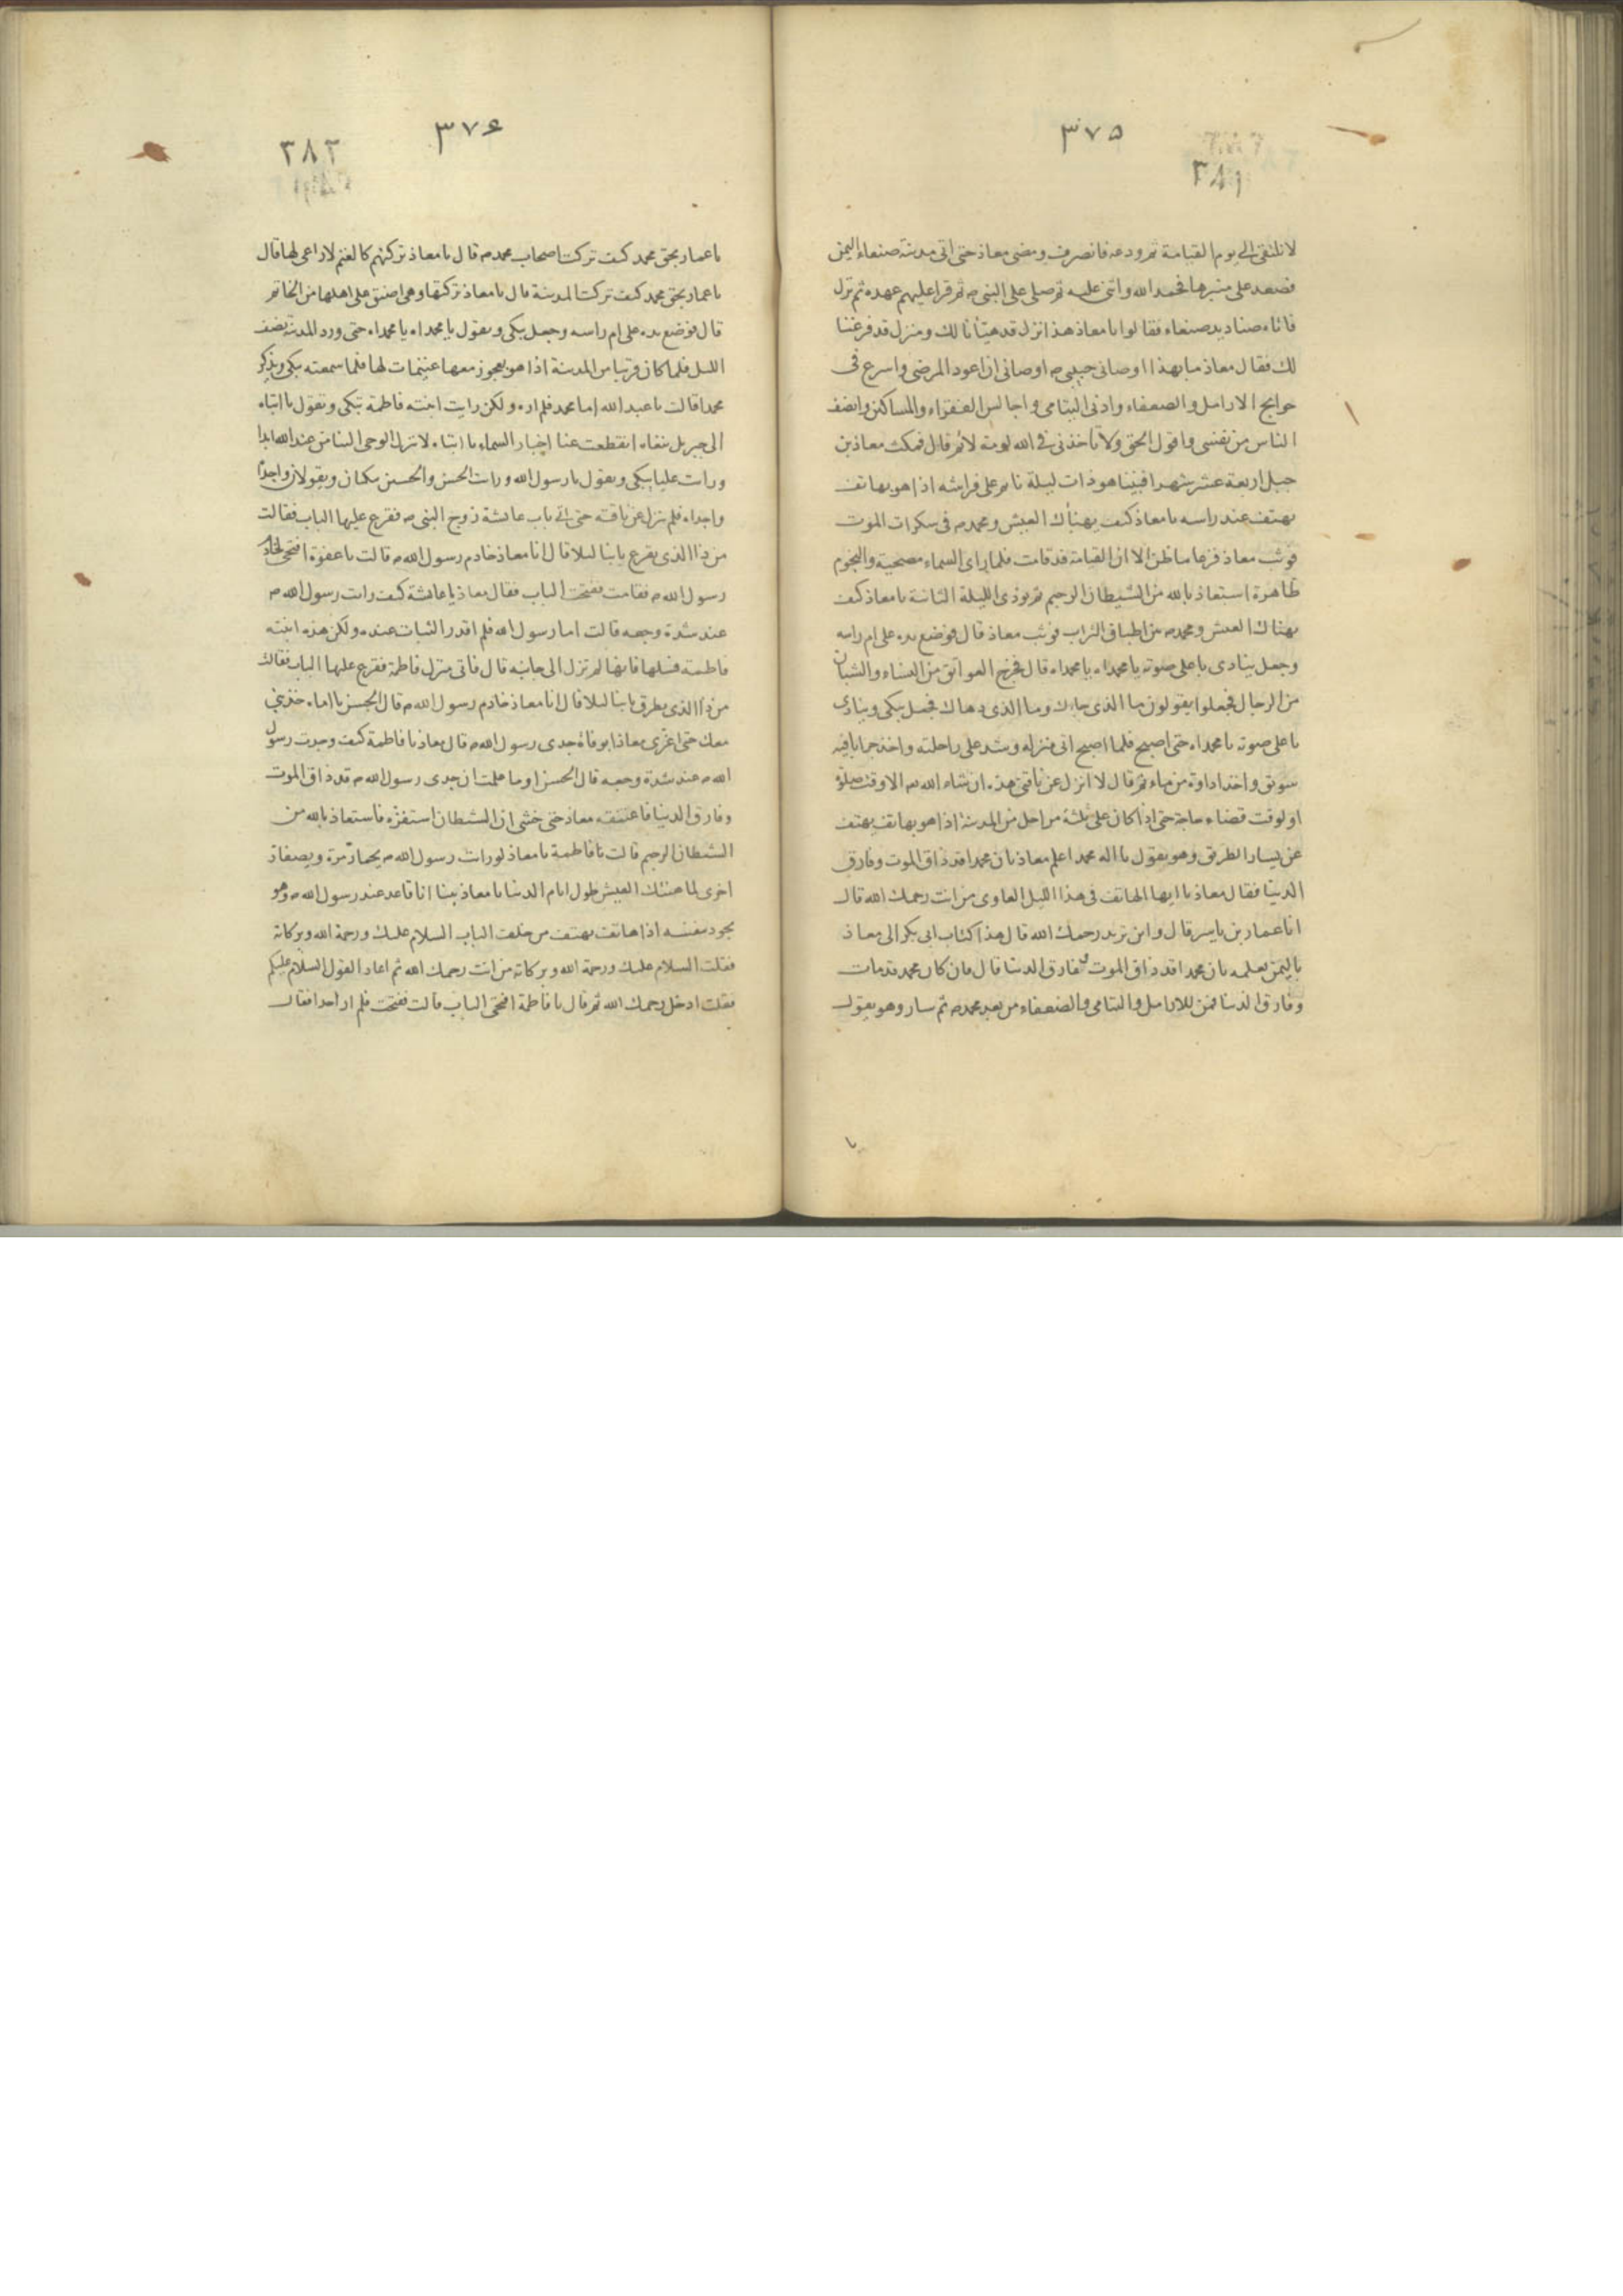 ٣٧٥
٣٨١
لا نلتقي الى يوم القيامة ثم ودعه فانصرف ومضى معاذ حتى اتى مدينة صنعاء اليمن
فصعد على منبرها فحمد الله واثنى عليه ثم صلى على النبي ص ثم قرا عليهم عهده ثم نزل
فاتاه صناديد صنعاء فقالوا يا معاذ هذا نزل قد هيّأنا لك ومنزل قد فرغنا
لك فقال معاذ ما بهذا اوصاني حبيبي ص اوصاني ان اعود المرضى واسرع في
حوايج الارامل والضعفاء وادني اليتامى واجالس الفقراء والمساكين وانصف
الناس من نفسي واقول الحق ولا تاخذني في الله لومة لائم قال فمكث معاذ بن
جبل اربعة عشر شهرا فبينا هو ذات ليلة نائم على فراشه اذا هو بهاتف
يهتف عند راسه يا معاذ كيف يهنأك العيش ومحمد ص في سكرات الموت
فوثب معاذ فزعا ما ظن الا ان القيامة قد قامت فلما راى السماء مصحية والنجوم
ظاهرة استعاذ بالله من الشيطان الرجيم ثم نودي الليلة الثانية يا معاذ كيف
يهناك العيش ومحمد ص بين اطباق التراب فوثب معاذ قال فوضع يده على ام راسه
وجعل ينادي باعلى صوته يا محمداه يا محمداه قال فخرج العواتق من النساء والشبان
من الرجال فجعلوا يقولون ما الذي جاءك وما الذي دهاك فجعل يبكي وينادي
باعلى صوته يا محمداه حتى اصبح فلما اصبح اتى منزله وشد على راحلته واخذ جرابا فيه
سويق واخذ اداوة من ماء ثم قال لا انزل عن ناقتي هذه ان شاء الله الا وقت صلوة
او لوقت قضاء حاجة حتى اذا كان على ثلثة مراحل من المدينة اذا هو بهاتف يهتف
عن يسار الطريق وهو يقول يا اله محمد اعلم معاذ بان محمدا قد ذاق الموت وفارق
الدنيا فقال معاذ يا ايها الهاتف في هذا الليل الغاوي من انت رحمك الله قال
انا عمار بن ياسر قال واين تريد رحمك الله قال هذا كتاب ابي بكر الى معاذ
باليمن يعلمه بان محمدا قد ذاق الموت وفارق الدنيا قال فان كان محمد قد مات
وفارق الدنيا فمن للارامل واليتامى والضعفاء من بعد محمد ص ثم سار وهو يقول
يا
٣٧۶
٣٨٢
يا عمار بحق محمد كيف تركت اصحاب محمد ص قال يا معاذ تركتهم كالغنم لا راعي لها قال
يا عمار بحق محمد كيف تركت المدينة قال يا معاذ تركتها وهي اضيق على اهلها من الخاتم
قال فوضع يده على ام راسه وجعل يبكي ويقول يا محمداه يا محمداه حتى ورد المدينة نصف
الليل فلما كان قريبا من المدينة اذا هو بعجوز معها غنيمات لها فلما سمعته يبكي ويذكر
محمدا قالت يا عبد الله اما محمد فلم اره ولكن رايت ابنته فاطمة تبكي وتقول يا ابتاه
الى جبريل ننعاه انقطعت عنا اخبار السماء يا ابتاه لا ينزل الوحي الينا من عند الله ابدا
ورايت عليا يبكي ويقول يا رسول الله ورايت الحسن والحسين يبكيان ويقولان واجداه
واجداه فلم ينزل عن ناقته حتى اتى باب عائشة زوج النبي ص فقرع عليها الباب فقالت
من ذا الذي يقرع بابنا ليلا قال انا معاذ خادم رسول الله ص قالت يا عفوة افتحي لخادم
رسول الله ص فقامت ففتحت الباب فقال معاذ يا عائشة كيف رايت رسول الله ص
عند شدة وجعه قالت اما رسول الله فلم اقدر الثبات عنده ولكن هذه ابنته
فاطمة فسلها فانها لم تزل الى جانبه قال فاتى منزل فاطمة فقرع عليها الباب فقالت
من ذا الذي يطرق بابنا ليلا قال انا معاذ خادم رسول الله ص قال الحسن يا اماه خذيني
معك حتى اعزي معاذا بوفاة جدي رسول الله ص قال معاذ يا فاطمة كيف وجدت رسول
الله ص عند شدة وجعه قال الحسن او ما علمت ان جدي رسول الله ص قد ذاق الموت
وفارق الدنيا فاعتنقه معاذ حتى خشي ان الشيطان استفزه فاستعاذ بالله من
الشيطان الرجيم قالت يا فاطمة يا معاذ لو رايت رسول الله ص يحمار مرة ويصفار
اخرى لما هنئك العيش طول ايام الدنيا يا معاذ بينا انا قاعد عند رسول الله ص وهو
يجود بنفسه اذا هاتف يهتف من خلف الباب السلام عليك ورحمة الله وبركاته
فقلت السلام عليك ورحمة الله وبركاته من انت رحمك الله ثم اعاد القول السلام عليكم
فقلت ادخل رحمك الله ثم قال يا فاطمة افتحي الباب قالت ففتحت فلم ار احدا فقال